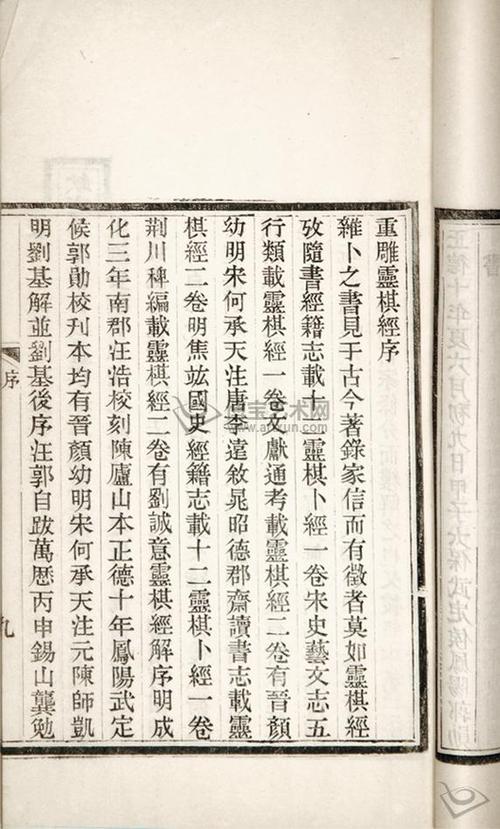 重雕靈棋經序
雜卜之書見于古今著錄家信而有徵者莫如靈棋經
攷隨書經籍志載十二靈棋卜經一卷宋史藝文志五
行類載靈棋經一卷文獻通考載靈棋經二卷有晉顏
幼明宋何承天注唐李遠敘晁昭德郡齋讀書志載靈
棋經二卷明焦竑國史經籍志載十二靈棋卜經一卷
荆川稗編載靈棋經二卷有劉誠意靈棋經解序明成
化三年南郡汪浩校刻陳廬山本正德十年鳳陽武定
侯郭勛校刋本均有晉顏幼明宋何承天注元陳師凱
明劉基解並劉基後序汪郭自跋萬厯丙申錫山龔勉
序
九